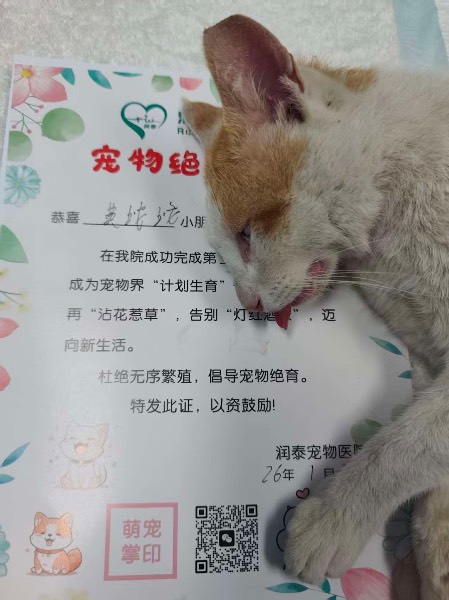 宠物绝
恭喜 黄 小朋
在我院成功完成第
成为宠物界“计划生育”
再“沾花惹草”，告别“灯红酒
”，迈
向新生活。
杜绝无序繁殖，倡导宠物绝育。
特发此证，以资鼓励!
润泰宠物医
26年 1月
萌宠
掌印